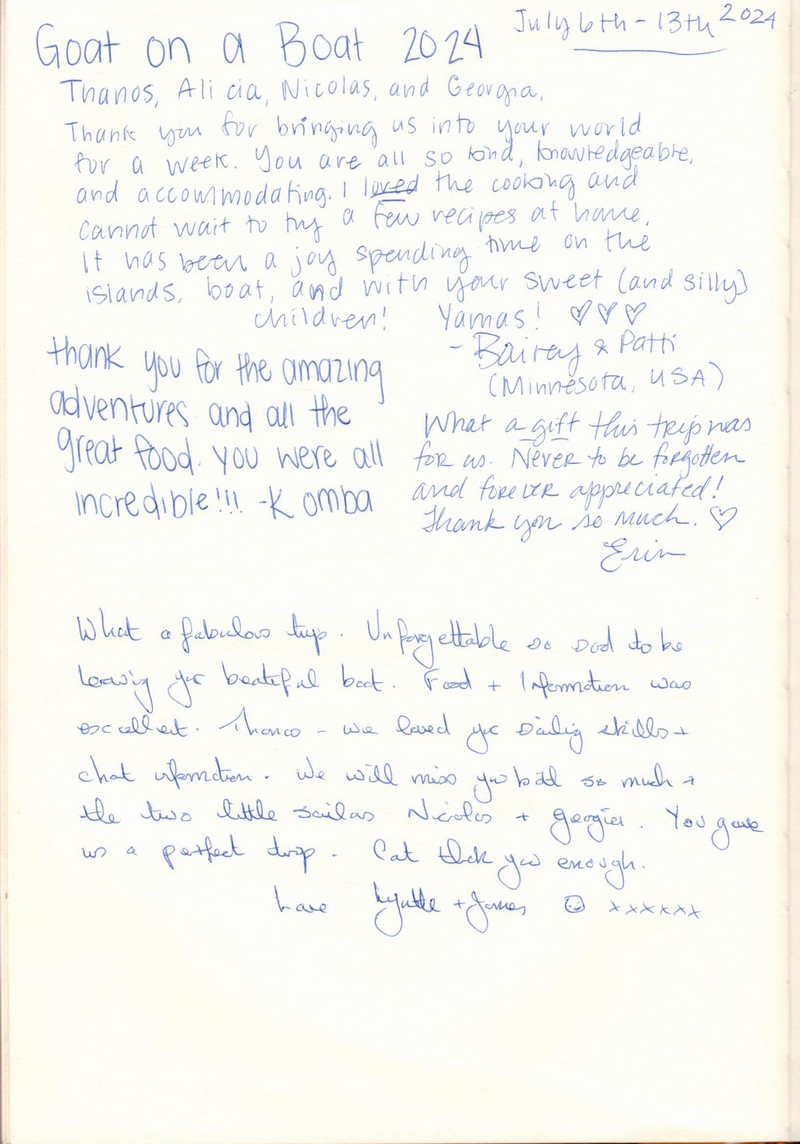 Goat on a Boat 2024
July 6th - 13th 2024
Thanos, Alicia, Nicolas, and Georgia,
Thank you for bringing us into your world
for a week. You are all so kind, knowledgeable,
and accommodating. I loved the cooking and
cannot wait to try a few recipes at home.
It has been a joy spending time on the
islands, boat, and with your sweet (and silly)
children! Yamas! ♡♡♡
- & Patti
(Minnesota, USA)
thank you for the amazing
adventures and all the
great food. you were all
incredible!!! -K omba
What a gift this trip was
for us. Never to be forgotten
and forever appreciated!
Thank you so much. ♡
Erin
What a fabulous trip. Unforgettable so sad to be
leaving your beatiful boat. Food + Information was
excellent. Thanos - we loved your sailing skills +
chat information. We will miss you both so much +
the two little sailors Nicolas + Georgia. You gave
us a perfect trip. Cat thak you enough.
Love + James ☺ xxxxxx